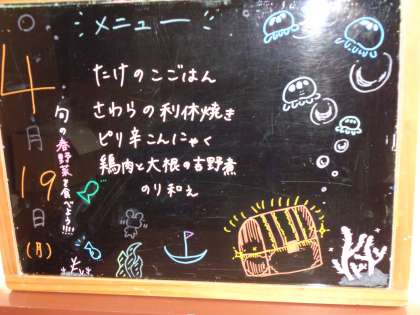 メニュー
4月19日(月)
旬の春野菜を食べよう!!
たけのこごはん
さわらの利休焼き
ピリ辛こんにゃく
鶏肉と大根の吉野煮
のり和え